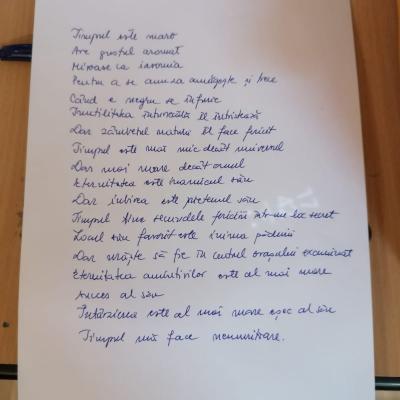 Timpul este maro
Are gustul aromat
Miroase ca ironia
Pentru a se amuza amăgește și trece
Când e negru se înfurie
Inutilitatea întunecată îl întristează
Dar zâmbetul naturii îl face fericit
Timpul este mai mic decât universul
Dar mai mare decât omul
Eternitatea este inamicul său
Dar iubirea este prietenul său
Timpul ține secundele fericirii într-un loc secret
Locul său favorit este inima pădurii
Dar urăște să fie în centrul orașului
Eternitatea amintirilor este al mai mare
succes al său
Întârzierea este al mai mare eșec al său
Timpul mă face nemuritoare.